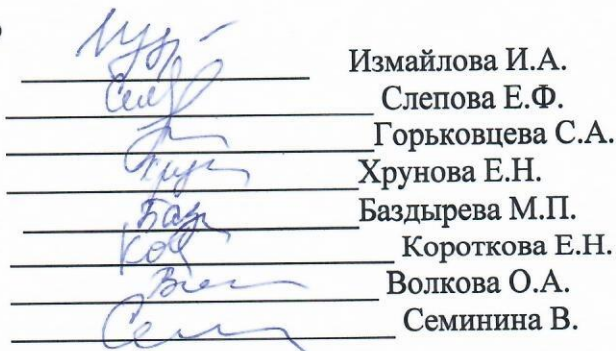 Измайлова И.А.
Слепова Е.Ф.
Горьковцева С.А.
Хрунова Е.Н.
Баздырева М.П.
Короткова Е.Н.
Волкова О.А.
Семинина В.